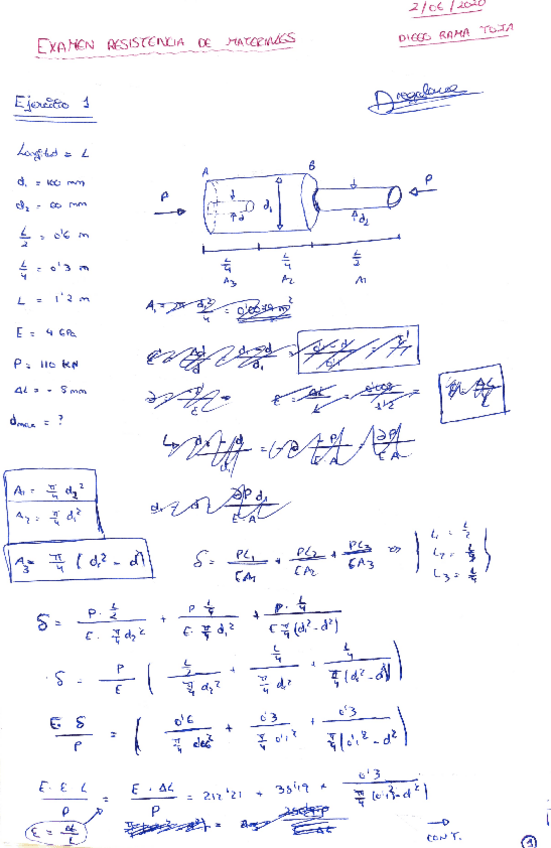 2/06/2020
EXAMEN RESISTENCIA DE MATERIALES
DIEGO RAMA TOJA
Ejercicio 1
Longitud = L
d₁ = 100 mm
d₂ = 60 mm
L/2 = 0'6 m
L/4 = 0'3 m
L = 1'2 m
E = 4 GPa
P = 110 KN
ΔL = - 5 mm
dmax = ?
A B
P d d₁ d₂ P
L/4 L/4 L/2
A₃ A₂ A₁
A₁ = π/4 d₂²
A₂ = π/4 d₁²
A₃ = π/4 (d₁² - d²)
δ = PL₁/EA₁ + PL₂/EA₂ + PL₃/EA₃ ⇒ { L₁ = L/2
L₂ = L/4
L₃ = L/4 }
δ = P · L/2 / E · π/4 d₂² + P L/4 / E · π/4 d₁² + P · L/4 / E π/4 (d₁² - d²)
δ = P/E ( L/2 / π/4 d₂² + L/4 / π/4 d₁² + L/4 / π/4 (d₁² - d²) )
E · δ / P = ( 0'6 / π/4 0'06² + 0'3 / π/4 0'1² + 0'3 / π/4 (0'1² - d²) )
E · ε L / P = E · ΔL / P = 212'21 + 38'19 + 0'3 / π/4 (0'1² - d²)
ε = ΔL/L
→ CONT.
1